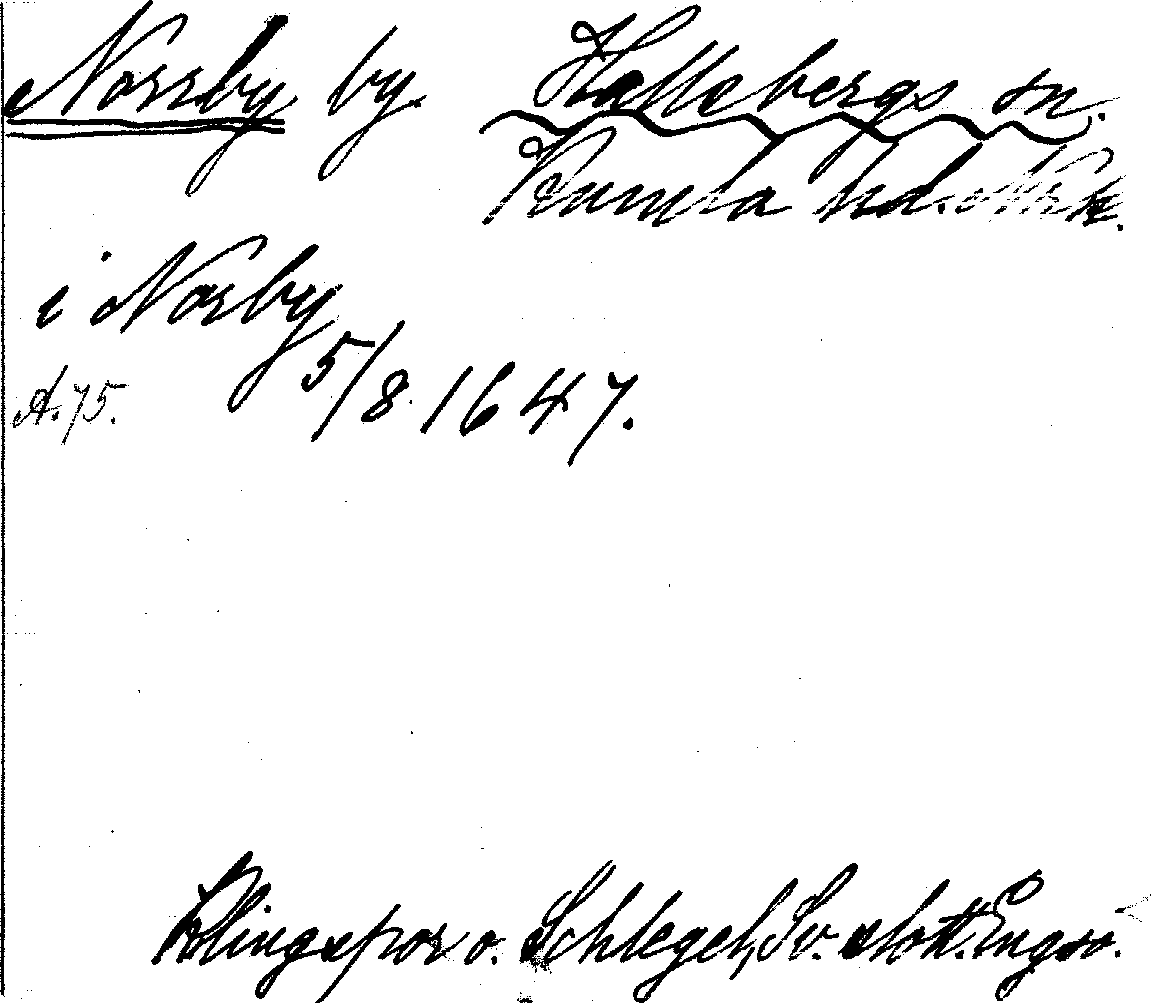 Norrby by. Hallsbergs sn.
Kumla hd. Nrk.
i Norby
5/8 1647.
A. 75.
Klingspor o. Schlegel, Sv. slott. Engsö.